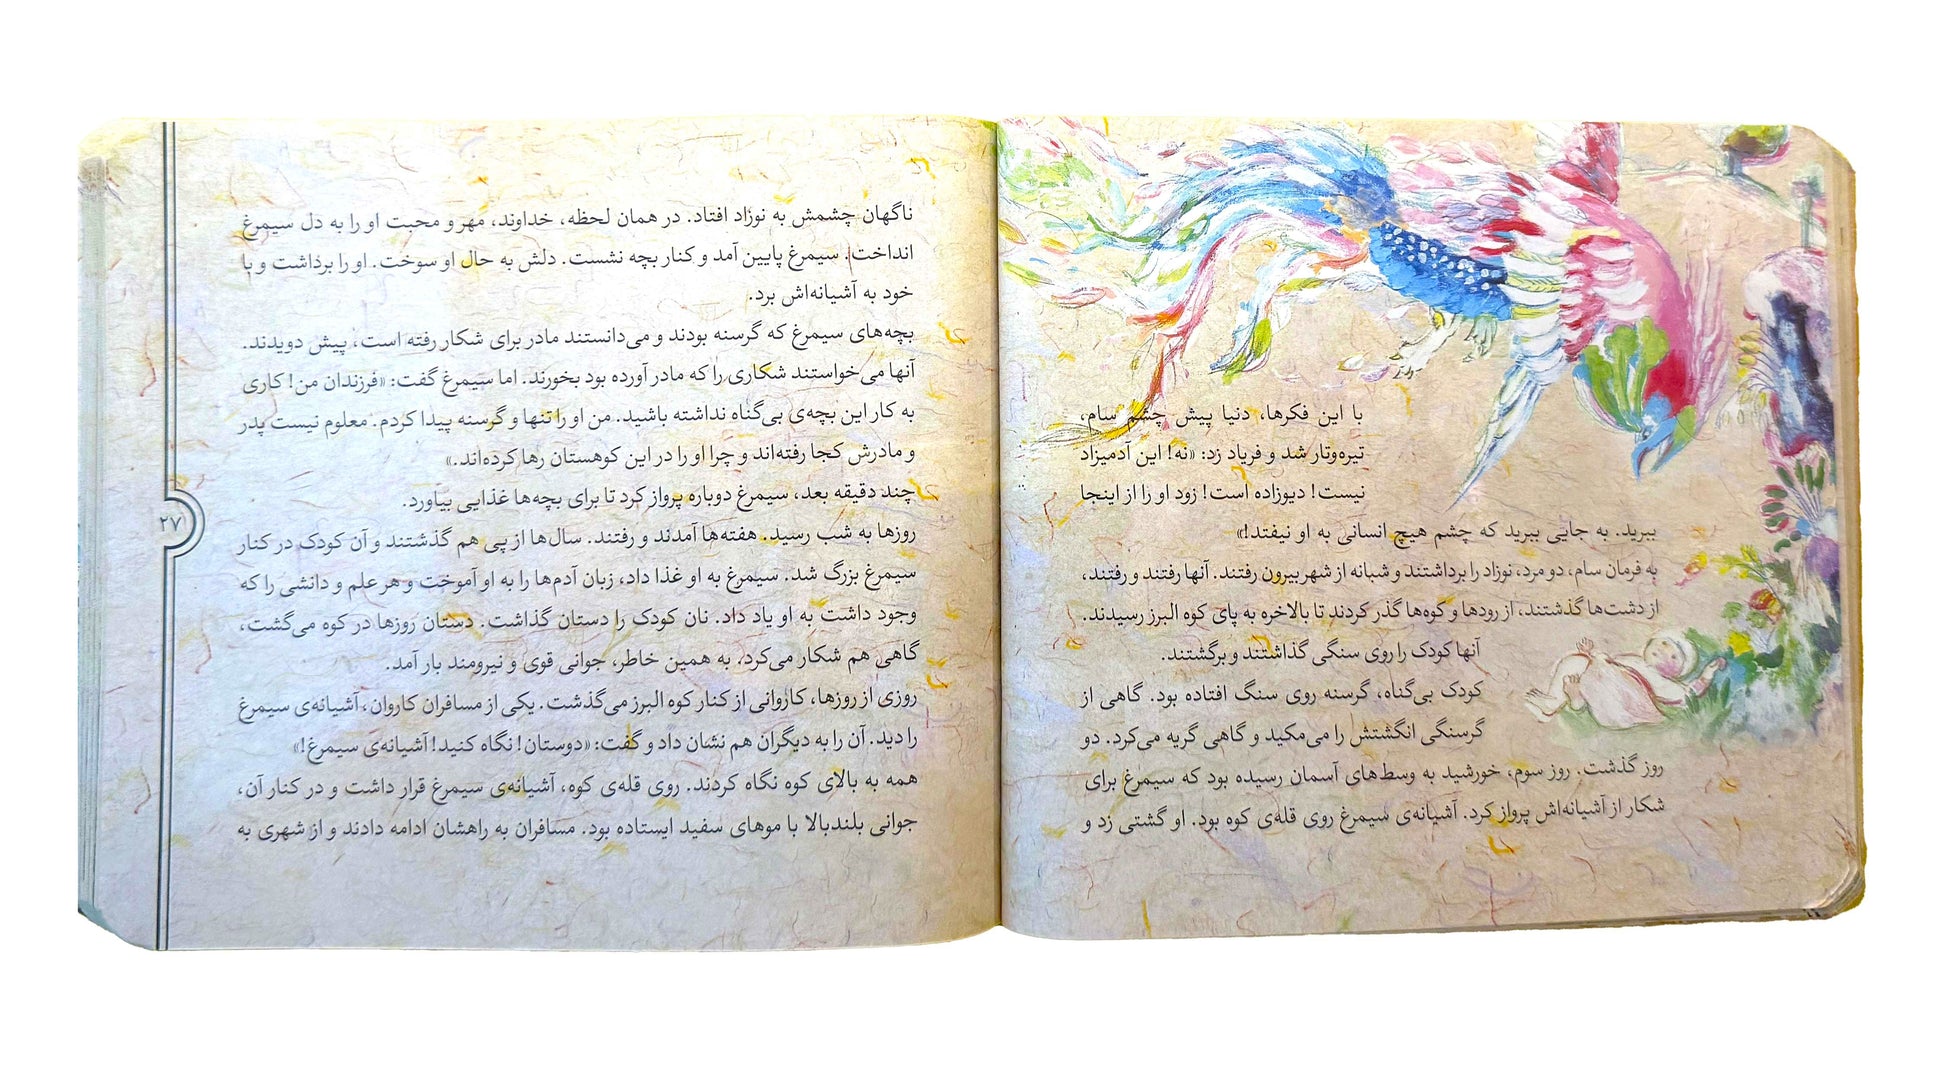 با این فکرها، دنیا پیش چشم سام،
تیره‌وتار شد و فریاد زد: «نه! این آدمیزاد
نیست! دیوزاده است! زود او را از اینجا
ببرید. به جایی ببرید که چشم هیچ انسانی به او نیفتد!»
به فرمان سام، دو مرد، نوزاد را برداشتند و شبانه از شهر بیرون رفتند. آنها رفتند و رفتند،
از دشت‌ها گذشتند، از رودها و کوه‌ها گذر کردند تا بالاخره به پای کوه البرز رسیدند.
آنها کودک را روی سنگی گذاشتند و برگشتند.
کودک بی‌گناه، گرسنه روی سنگ افتاده بود. گاهی از
گرسنگی انگشتش را می‌مکید و گاهی گریه می‌کرد. دو
روز گذشت. روز سوم، خورشید به وسط‌های آسمان رسیده بود که سیمرغ برای
شکار از آشیانه‌اش پرواز کرد. آشیانه‌ی سیمرغ روی قله‌ی کوه بود. او گشتی زد و
ناگهان چشمش به نوزاد افتاد. در همان لحظه، خداوند، مهر و محبت او را به دل سیمرغ
انداخت. سیمرغ پایین آمد و کنار بچه نشست. دلش به حال او سوخت. او را برداشت و با
خود به آشیانه‌اش برد.
بچه‌های سیمرغ که گرسنه بودند و می‌دانستند مادر برای شکار رفته است، پیش دویدند.
آنها می‌خواستند شکاری را که مادر آورده بود بخورند. اما سیمرغ گفت: «فرزندان من! کاری
به کار این بچه‌ی بی‌گناه نداشته باشید. من او را تنها و گرسنه پیدا کردم. معلوم نیست پدر
و مادرش کجا رفته‌اند و چرا او را در این کوهستان رها کرده‌اند.»
چند دقیقه بعد، سیمرغ دوباره پرواز کرد تا برای بچه‌ها غذایی بیاورد.
روزها به شب رسید. هفته‌ها آمدند و رفتند. سال‌ها از پی هم گذشتند و آن کودک در کنار
سیمرغ بزرگ شد. سیمرغ به او غذا داد، زبان آدم‌ها را به او آموخت و هر علم و دانشی را که
وجود داشت به او یاد داد. نان کودک را دستان گذاشت. دستان روزها در کوه می‌گشت،
گاهی هم شکار می‌کرد. به همین خاطر، جوانی قوی و نیرومند بار آمد.
روزی از روزها، کاروانی از کنار کوه البرز می‌گذشت. یکی از مسافران کاروان، آشیانه‌ی سیمرغ
را دید. آن را به دیگران هم نشان داد و گفت: «دوستان! نگاه کنید! آشیانه‌ی سیمرغ!»
همه به بالای کوه نگاه کردند. روی قله‌ی کوه، آشیانه‌ی سیمرغ قرار داشت و در کنار آن،
جوانی بلندبالا با موهای سفید ایستاده بود. مسافران به راهشان ادامه دادند و از شهری به
۲۷